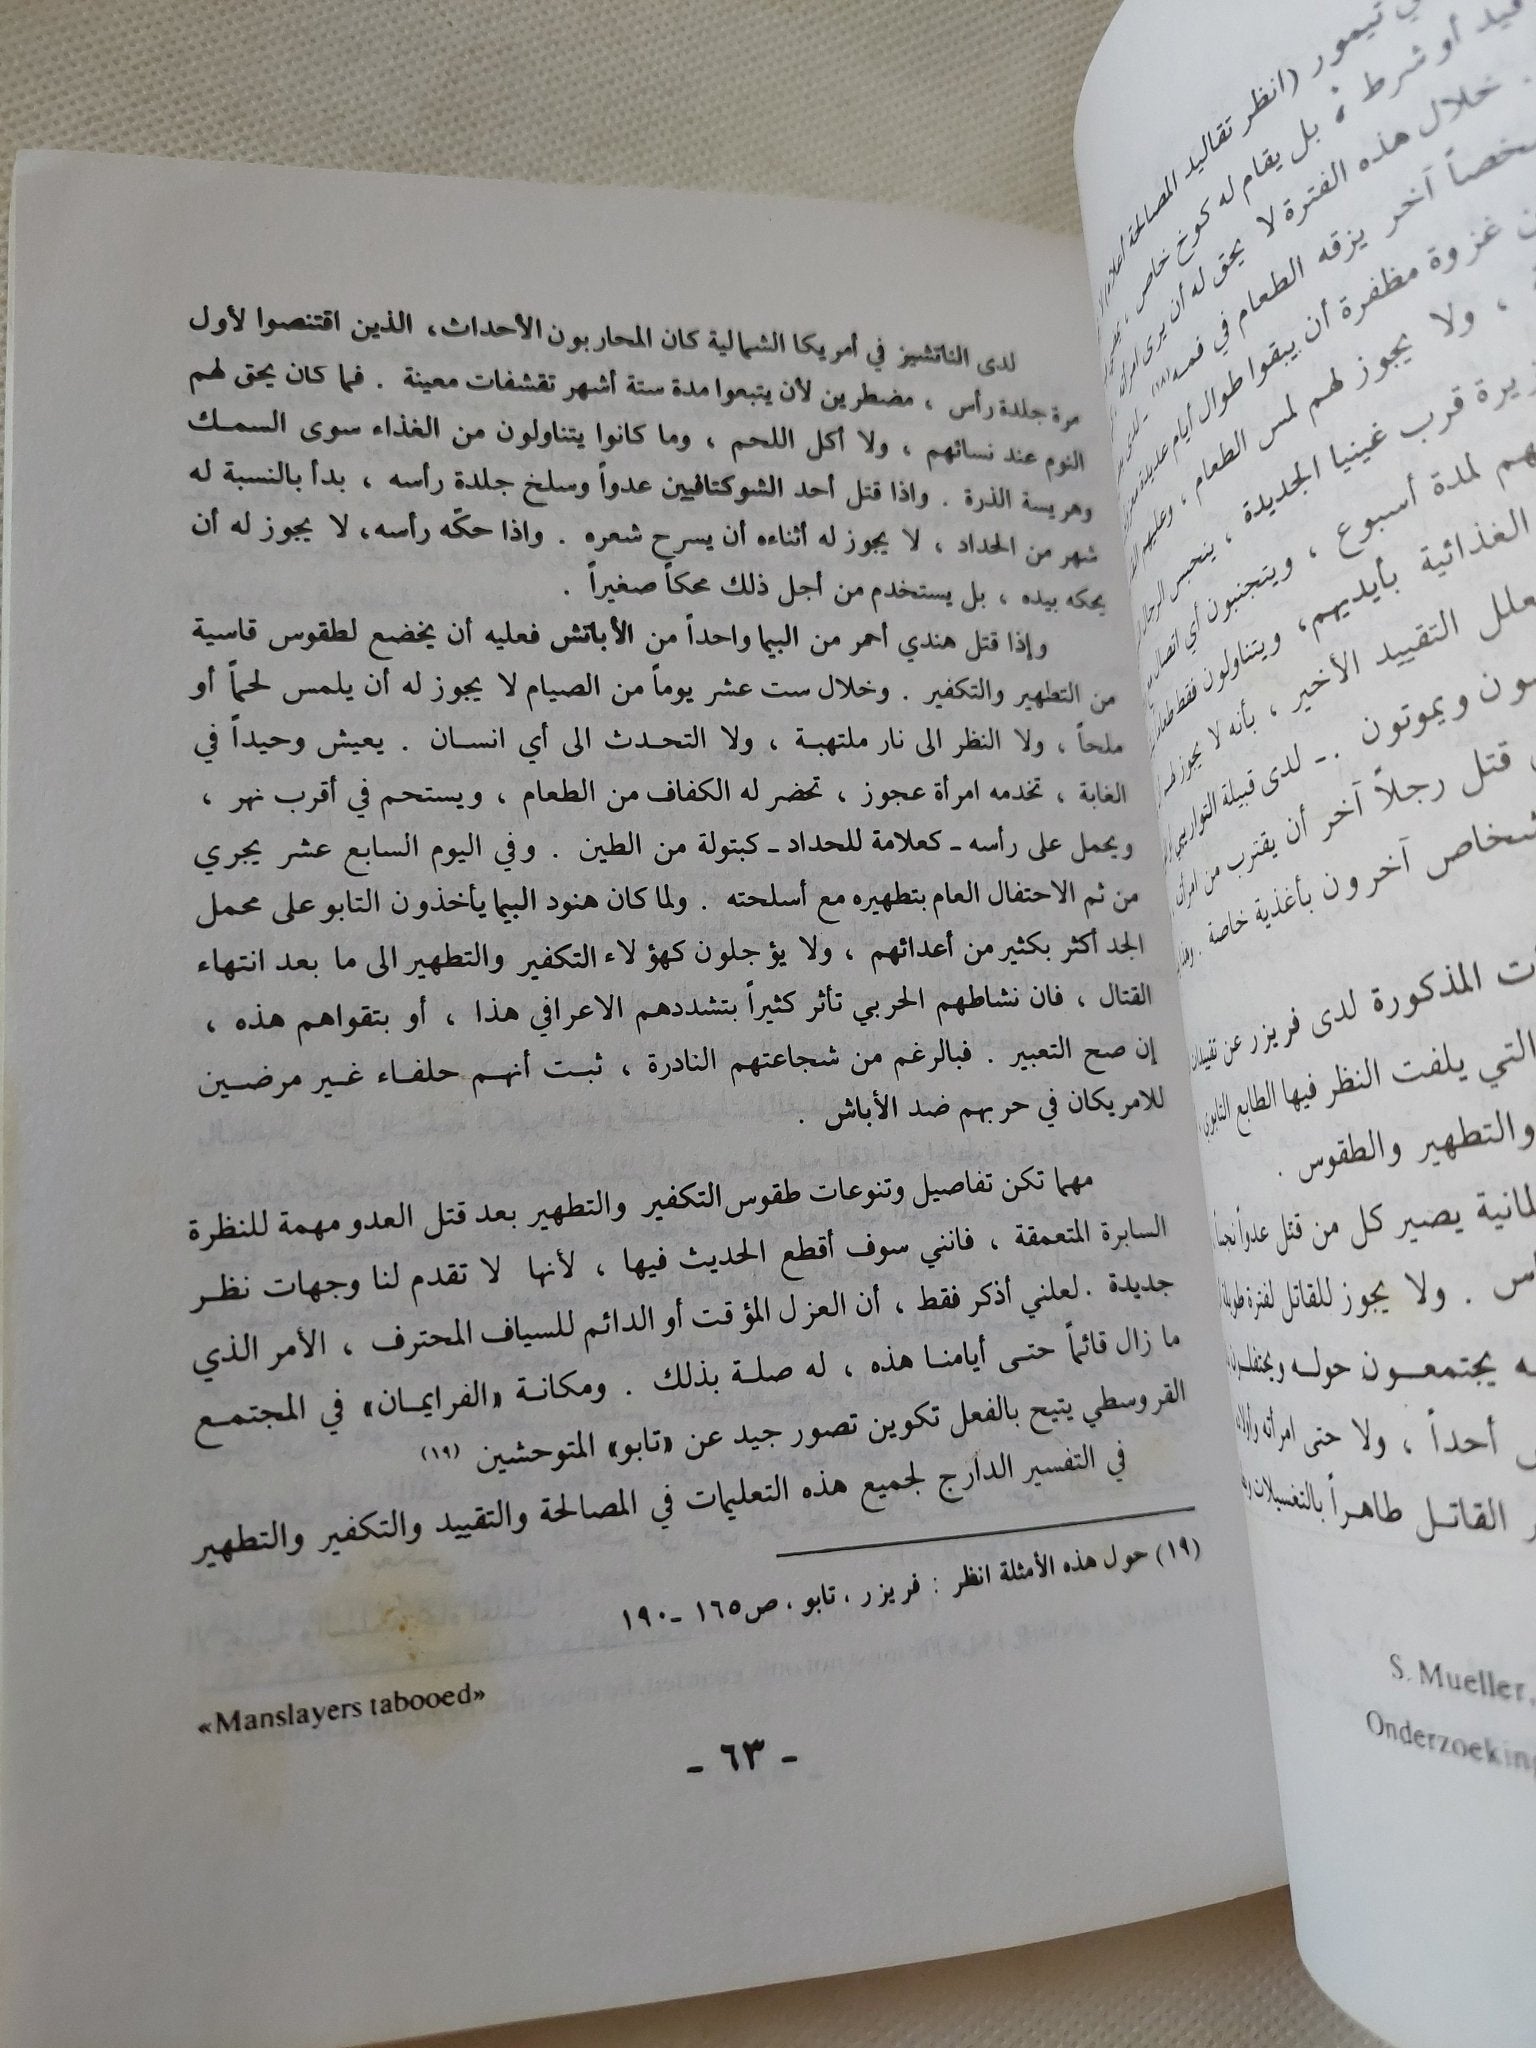 لدى الناتشيز في أمريكا الشمالية كان المحاربون الأحداث، الذين اقتنصوا لأول
مرة جلدة رأس ، مضطرين لأن يتبعوا مدة ستة أشهر تقشفات معينة . فما كان يحق لهم
النوم عند نسائهم ، ولا أكل اللحم ، وما كانوا يتناولون من الغذاء سوى السمك
وهريسة الذرة . واذا قتل أحد الشوكتافيين عدواً وسلخ جلدة رأسه ، بدأ بالنسبة له
شهر من الحداد ، لا يجوز له أثناءه أن يسرح شعره . واذا حكّه رأسه، لا يجوز له أن
يحكه بيده ، بل يستخدم من أجل ذلك محكاً صغيراً .
وإذا قتل هندي أحمر من البيما واحداً من الأباتش فعليه أن يخضع لطقوس قاسية
من التطهير والتكفير . وخلال ست عشر يوماً من الصيام لا يجوز له أن يلمس لحماً أو
ملحاً ، ولا النظر الى نار ملتهبة ، ولا التحدث الى أي انسان . يعيش وحيداً في
الغابة ، تخدمه امرأة عجوز ، تحضر له الكفاف من الطعام ، ويستحم في أقرب نهر ،
ويحمل على رأسه ـ كعلامة للحداد ـ كبتولة من الطين . وفي اليوم السابع عشر يجري
من ثم الاحتفال العام بتطهيره مع أسلحته . ولما كان هنود البيما يأخذون التابو على محمل
الجد أكثر بكثير من أعدائهم ، ولا يؤجلون كهؤلاء التكفير والتطهير الى ما بعد انتهاء
القتال ، فان نشاطهم الحربي تأثر كثيراً بتشددهم الاعرافي هذا ، أو بتقواهم هذه ،
إن صح التعبير . فبالرغم من شجاعتهم النادرة ، ثبت أنهم حلفاء غير مرضين
للامريكان في حربهم ضد الأباش .
مهما تكن تفاصيل وتنوعات طقوس التكفير والتطهير بعد قتل العدو مهمة للنظرة
السابرة المتعمقة ، فانني سوف أقطع الحديث فيها ، لأنها لا تقدم لنا وجهات نظر
جديدة . لعلني أذكر فقط ، أن العزل المؤقت أو الدائم للسياف المحترف ، الأمر الذي
ما زال قائماً حتى أيامنا هذه ، له صلة بذلك . ومكانة «الفرايمان» في المجتمع
القروسطي يتيح بالفعل تكوين تصور جيد عن «تابو» المتوحشين (١٩)
في التفسير الدارج لجميع هذه التعليمات في المصالحة والتقييد والتكفير والتطهير
(١٩) حول هذه الأمثلة انظر : فريزر ، تابو ، ص١٦٥ ـ١٩٠
«Manslayers tabooed»
- ٦٣ -
تيمور (انظر تقاليد المصالحة أعلاه)
أو شرط ، بل يقام له كوخ خاص ،
خلال هذه الفترة لا يحق له أن يرى امرأته
آخر يزقه الطعام في فمه (١٨)
غزوة مظفرة أن يبقوا طوال أيام عديدة
، ولا يجوز لهم لمس الطعام ، وعليهم
قرب غينيا الجديدة ، ينحبس الرجال
لمدة أسبوع ، ويتجنبون أي اتصال
الغذائية بأيديهم، ويتناولون فقط
التقييد الأخير ، بأنه لا يجوز لهم
ويموتون .ـ لدى قبيلة
قتل رجلاً آخر أن يقترب من امرأته
آخرون بأغذية خاصة .
المذكورة لدى فريزر عن تقييدات
التي يلفت النظر فيها الطابع التابوي
والتطهير والطقوس .
يصير كل من قتل عدواً نجساً
. ولا يجوز للقاتل لفترة طويلة
يجتمعون حوله ويحتفلون
أحداً ، ولا حتى امرأته وأولاده
القاتل طاهراً بالتغسيلات
S. Mueller,